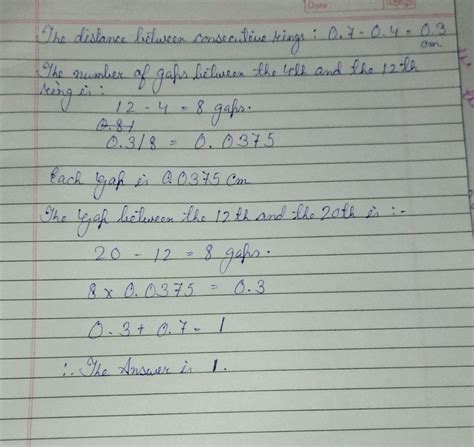 Date
The distance between consecutive rings : 0.7 - 0.4 = 0.3
cm
The number of gaps between the 4th and the 12th
ring is :
12 - 4 = 8 gaps.
0.8/
0.3/8 = 0.0375
Each gap is 0.0375 cm
The gap between the 12th and the 20th is :-
20 - 12 = 8 gaps.
8 x 0.0375 = 0.3
0.3 + 0.7 = 1
∴ The Answer is 1.